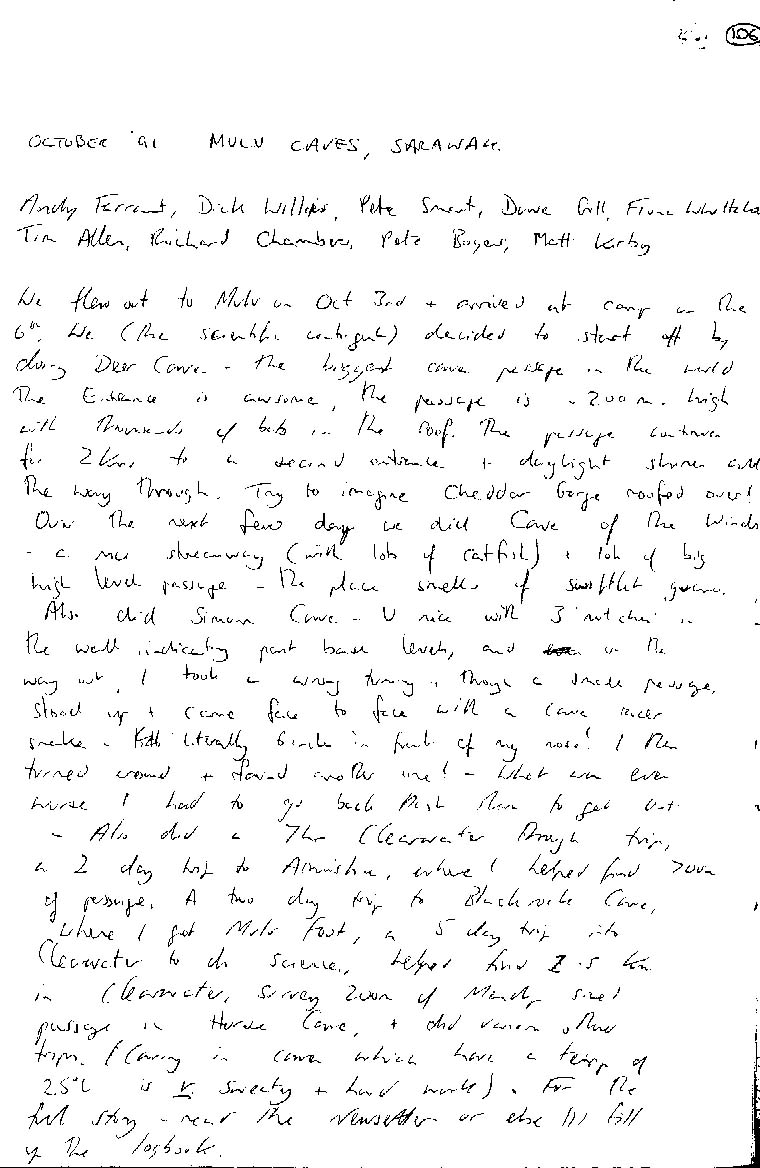 106
OCTOBER '91 MULU CAVES, SARAWAK.
Andy Farrant, Dick Willis, Pete Smart, Dave Gill, Fiona Whittaker
Tim Allen, Richard Chambers, Pete Boyes, Matt Kirby
We flew out to Mulu on Oct 3rd + arrived at camp on the
6th. We (the scientific contingent) decided to start off by
doing Deer Cave - the biggest cave passage in the world
The Entrance is awsome, the passage is ~200m high
with thousands of bats in the roof. The passage continues
for 2km to a second entrance + daylight shines all
the way through. Try to imagine Cheddar Gorge roofed over!
Over the next few days we did Cave of the Winds
- a nice streamway (with lots of catfish) + lots of big
high level passage - the place smells of swiftlet guano.
Also did Simons Cave - V nice with 3 notches in
the wall indicating past base levels, and on the
way out, I took a wrong turning, through a small passage,
stood up + came face to face with a cave racer
snake - literally 6 inches in front of my nose! I then
turned around + found another one! - What was even
worse I had to go back past them to get out.
- Also did a 7hr Clearwater through trip,
a 2 day trip to , where I helped find 700m
of passage. A two day trip to Blackrock Cave,
where I got Mulu foot, a 5 day trip into
Clearwater to do science, helped find 1.5 km
in Clearwater, survey 200m of Mandy sized
passage in Cave, + did various other
trips. (Caving in caves which have a temp of
25°C is v. sweaty + hard work). For the
full story - read the Newsletter or else I'll fill
up the logbook.